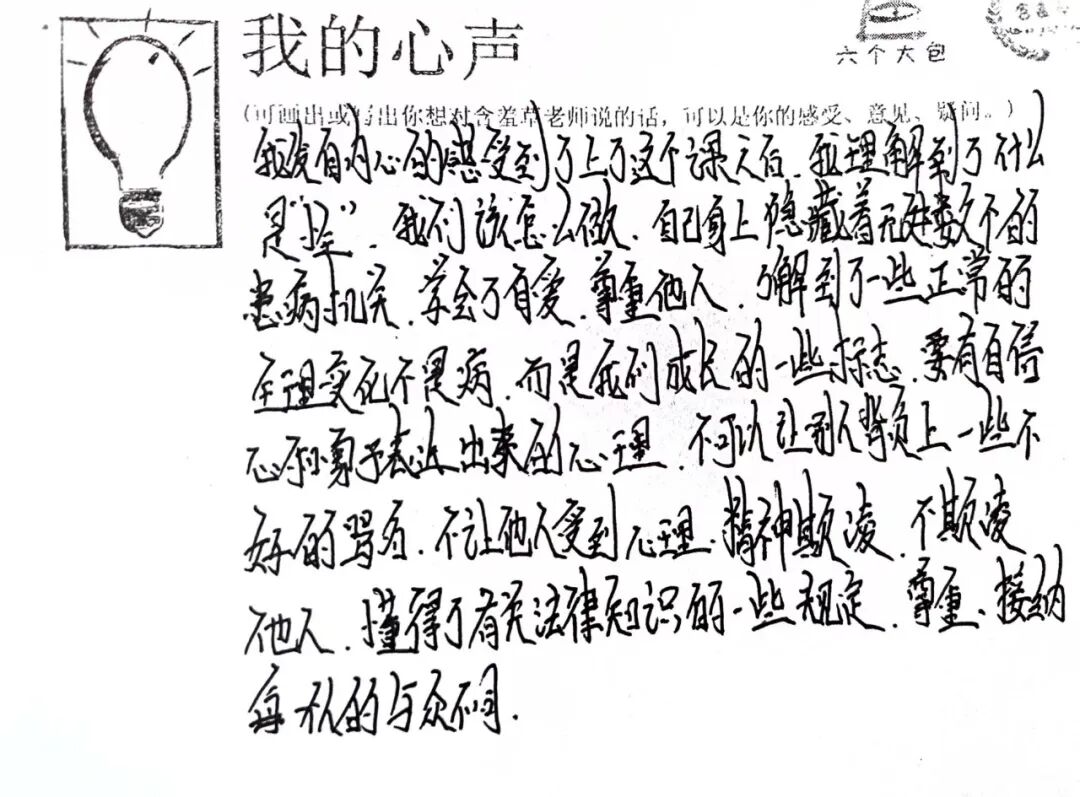 我的心声
六个大包
(可画出或写出你想对含羞草老师说的话，可以是你的感受、意见、疑问。)
我发自内心的感受到了上了这个课之后，我理解到了什么
是"性"，我们该怎么做，自己身上隐藏着无数个的
患病，学会了自爱，尊重他人，了解到了一些正常的
生理变化不是病，而是我们成长的一些标志，要有自信
心和勇于表达出来的心理，不可以让别人背负上一些不
好的骂名，不让他人受到心理，精神颠凌，不颠凌
他人，懂得了有关法律知识的一些规定，尊重，接纳
每一个人的与众不同.